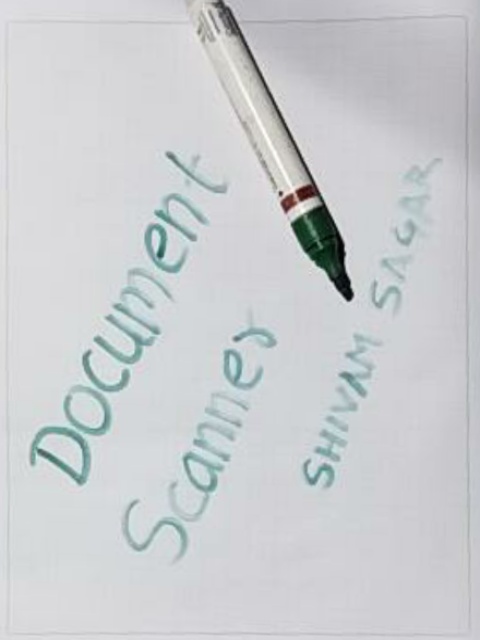 Document
Scanner
SHIVAM SAGAR